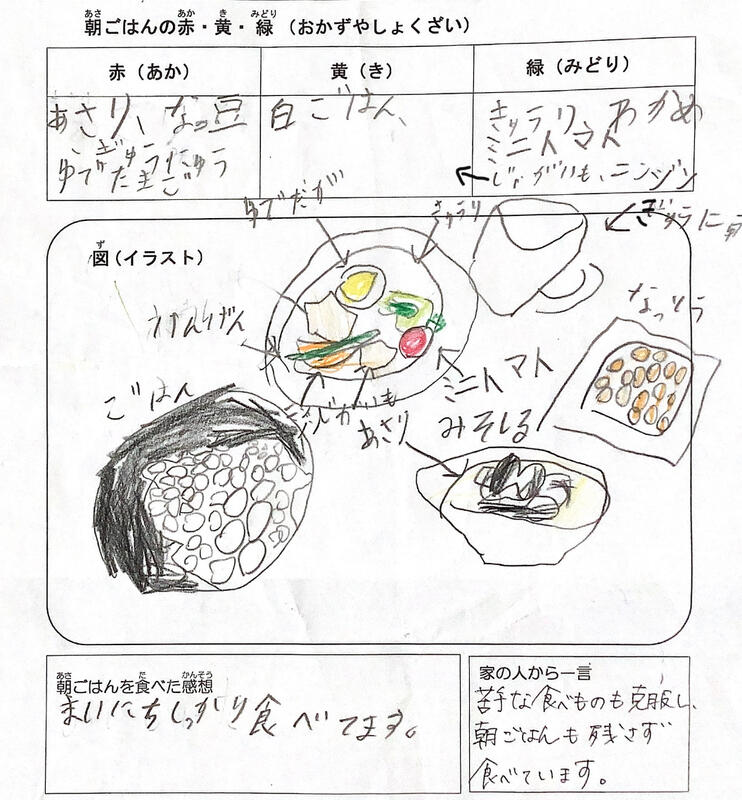 朝ごはんの赤・黄・緑（おかずやしょくざい）
赤（あか）
あさり、なっ豆
ぎゅうにゅう
ゆでたまご
黄（き）
白ごはん、
緑（みどり）
きゅうり わかめ
ミニトマト
←じゃがいも、ニンジン
図（イラスト）
ゆでたが
きゅうり
ぎゅうにゅう
なっとう
ミニトマト
じゃがいも
ごはん
あさり
みそしる
朝ごはんを食べた感想
まいにちしっかり食べてます。
家の人から一言
苦手な食べものも克服し、
朝ごはんも残さず
食べています。